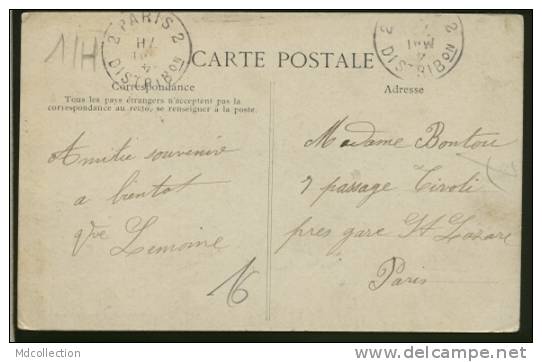 1/H
2 PARIS 2
DISTRIBON
2 2
DISTRIBON
CARTE POSTALE
Correspondance
Tous les pays étrangers n'acceptent pas la
correspondance au recto, se renseigner à la poste.
Adresse
Amitié souvenire
a bientot
Lemoine
16
Madame Bontou
7 passage Tivoli
pres gare St Lazare
Paris
Mdcollection
www.delcampe.net